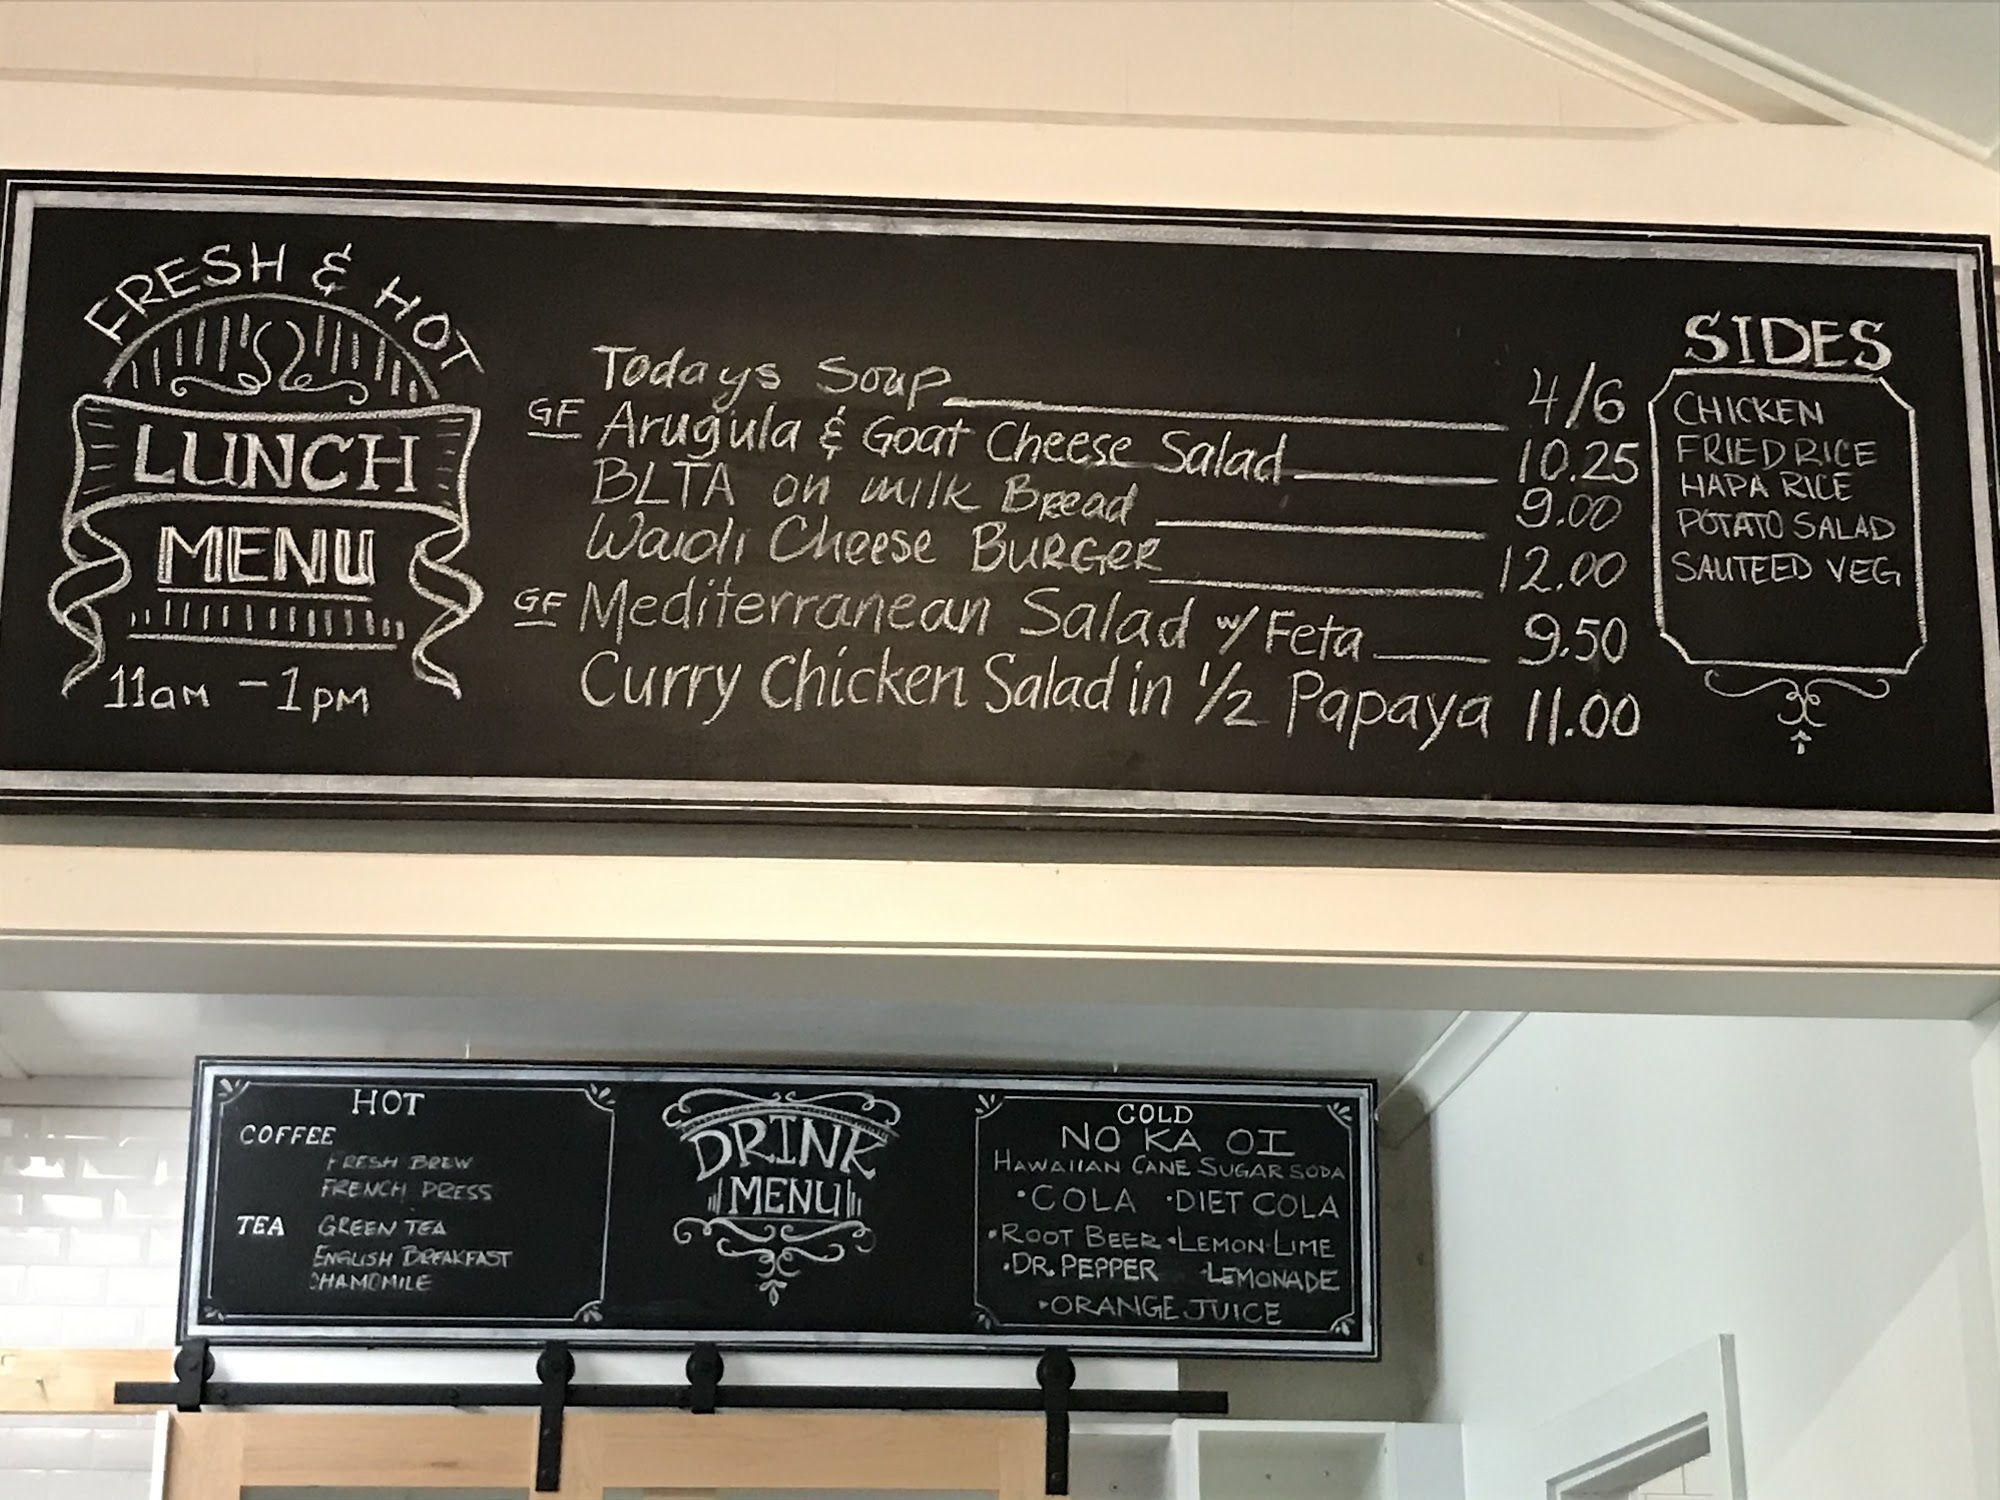 FRESH & HOT
LUNCH
MENU
11am - 1pm
Todays Soup 4/6
GF Arugula & Goat Cheese Salad 10.25
BLTA on milk Bread 9.00
Waioli Cheese BURGER 12.00
GF Mediterranean Salad w/ Feta 9.50
Curry Chicken Salad in 1/2 Papaya 11.00
SIDES
CHICKEN
FRIED RICE
HAPA RICE
POTATO SALAD
SAUTEED VEG
HOT
COFFEE
FRESH BREW
FRENCH PRESS
TEA GREEN TEA
ENGLISH BREAKFAST
CHAMOMILE
DRINK
MENU
COLD
NO KA OI
HAWAIIAN CANE SUGAR SODA
•COLA •DIET COLA
•ROOT BEER •LEMON-LIME
•DR. PEPPER •LEMONADE
•ORANGE JUICE